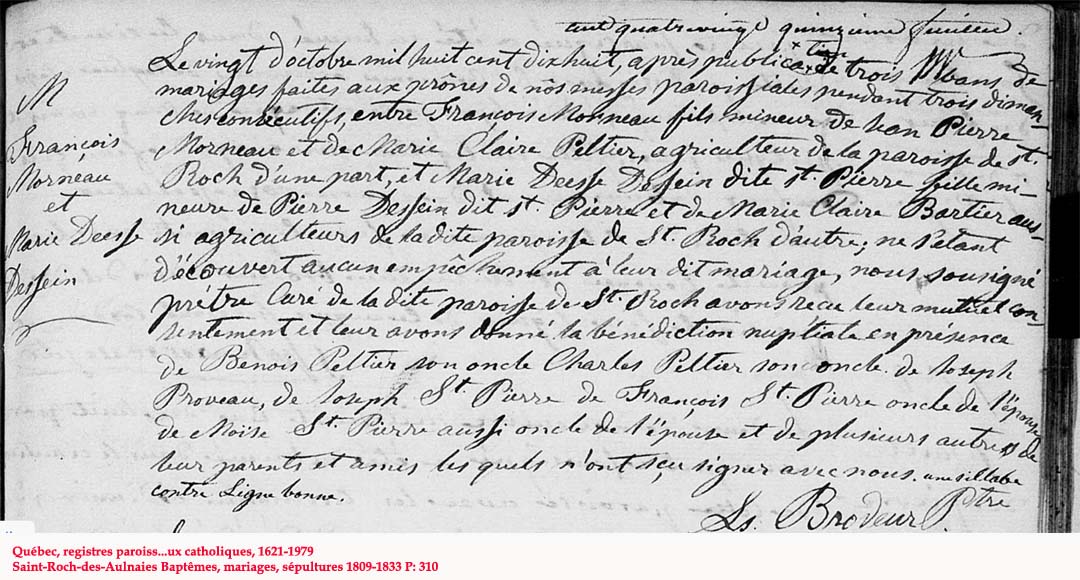 cent quatrevingt quinzieme feuillet.
Le vingt d'octobre mil huit cent dixhuit, après publica + tion de trois bans de
mariages faites aux prônes de nos messes paroissiales pendant trois diman-
ches consécutifs, entre François Morneau fils mineur de Jean Pierre
Morneau et de Marie Claire Peltier, agriculteur de la paroisse de St.
Roch d'une part, et Marie Deesse Dessein dite St. Pierre fille mi-
neure de Pierre Dessein dit St. Pierre et de Marie Claire Bartier aus-
si agriculteurs de la dite paroisse de St. Roch d'autre; ne s'etant
découvert aucun empêchement à leur dit mariage, nous sousigné
prétre Curé de la dite paroisse de St. Roch avons recu leur mutuel con-
sentement et leur avons donné la bénédiction nuptiale en présence
de Benois Peltier son oncle Charles Peltier son oncle de Joseph
Proveau, de Joseph St. Pierre de François St. Pierre oncle de l'épouse
de Moise St. Pierre aussi oncle de l'épouse et de plusieurs autres de
leur parents et amis les quels n'ont sçu signer avec nous. une sillabe
contre Ligne bonne.
Ls. Brodeur Ptre
M
François
Morneau
et
Marie Deesse
Dessein
Québec, registres paroiss...ux catholiques, 1621-1979
Saint-Roch-des-Aulnaies Baptêmes, mariages, sépultures 1809-1833 P: 310